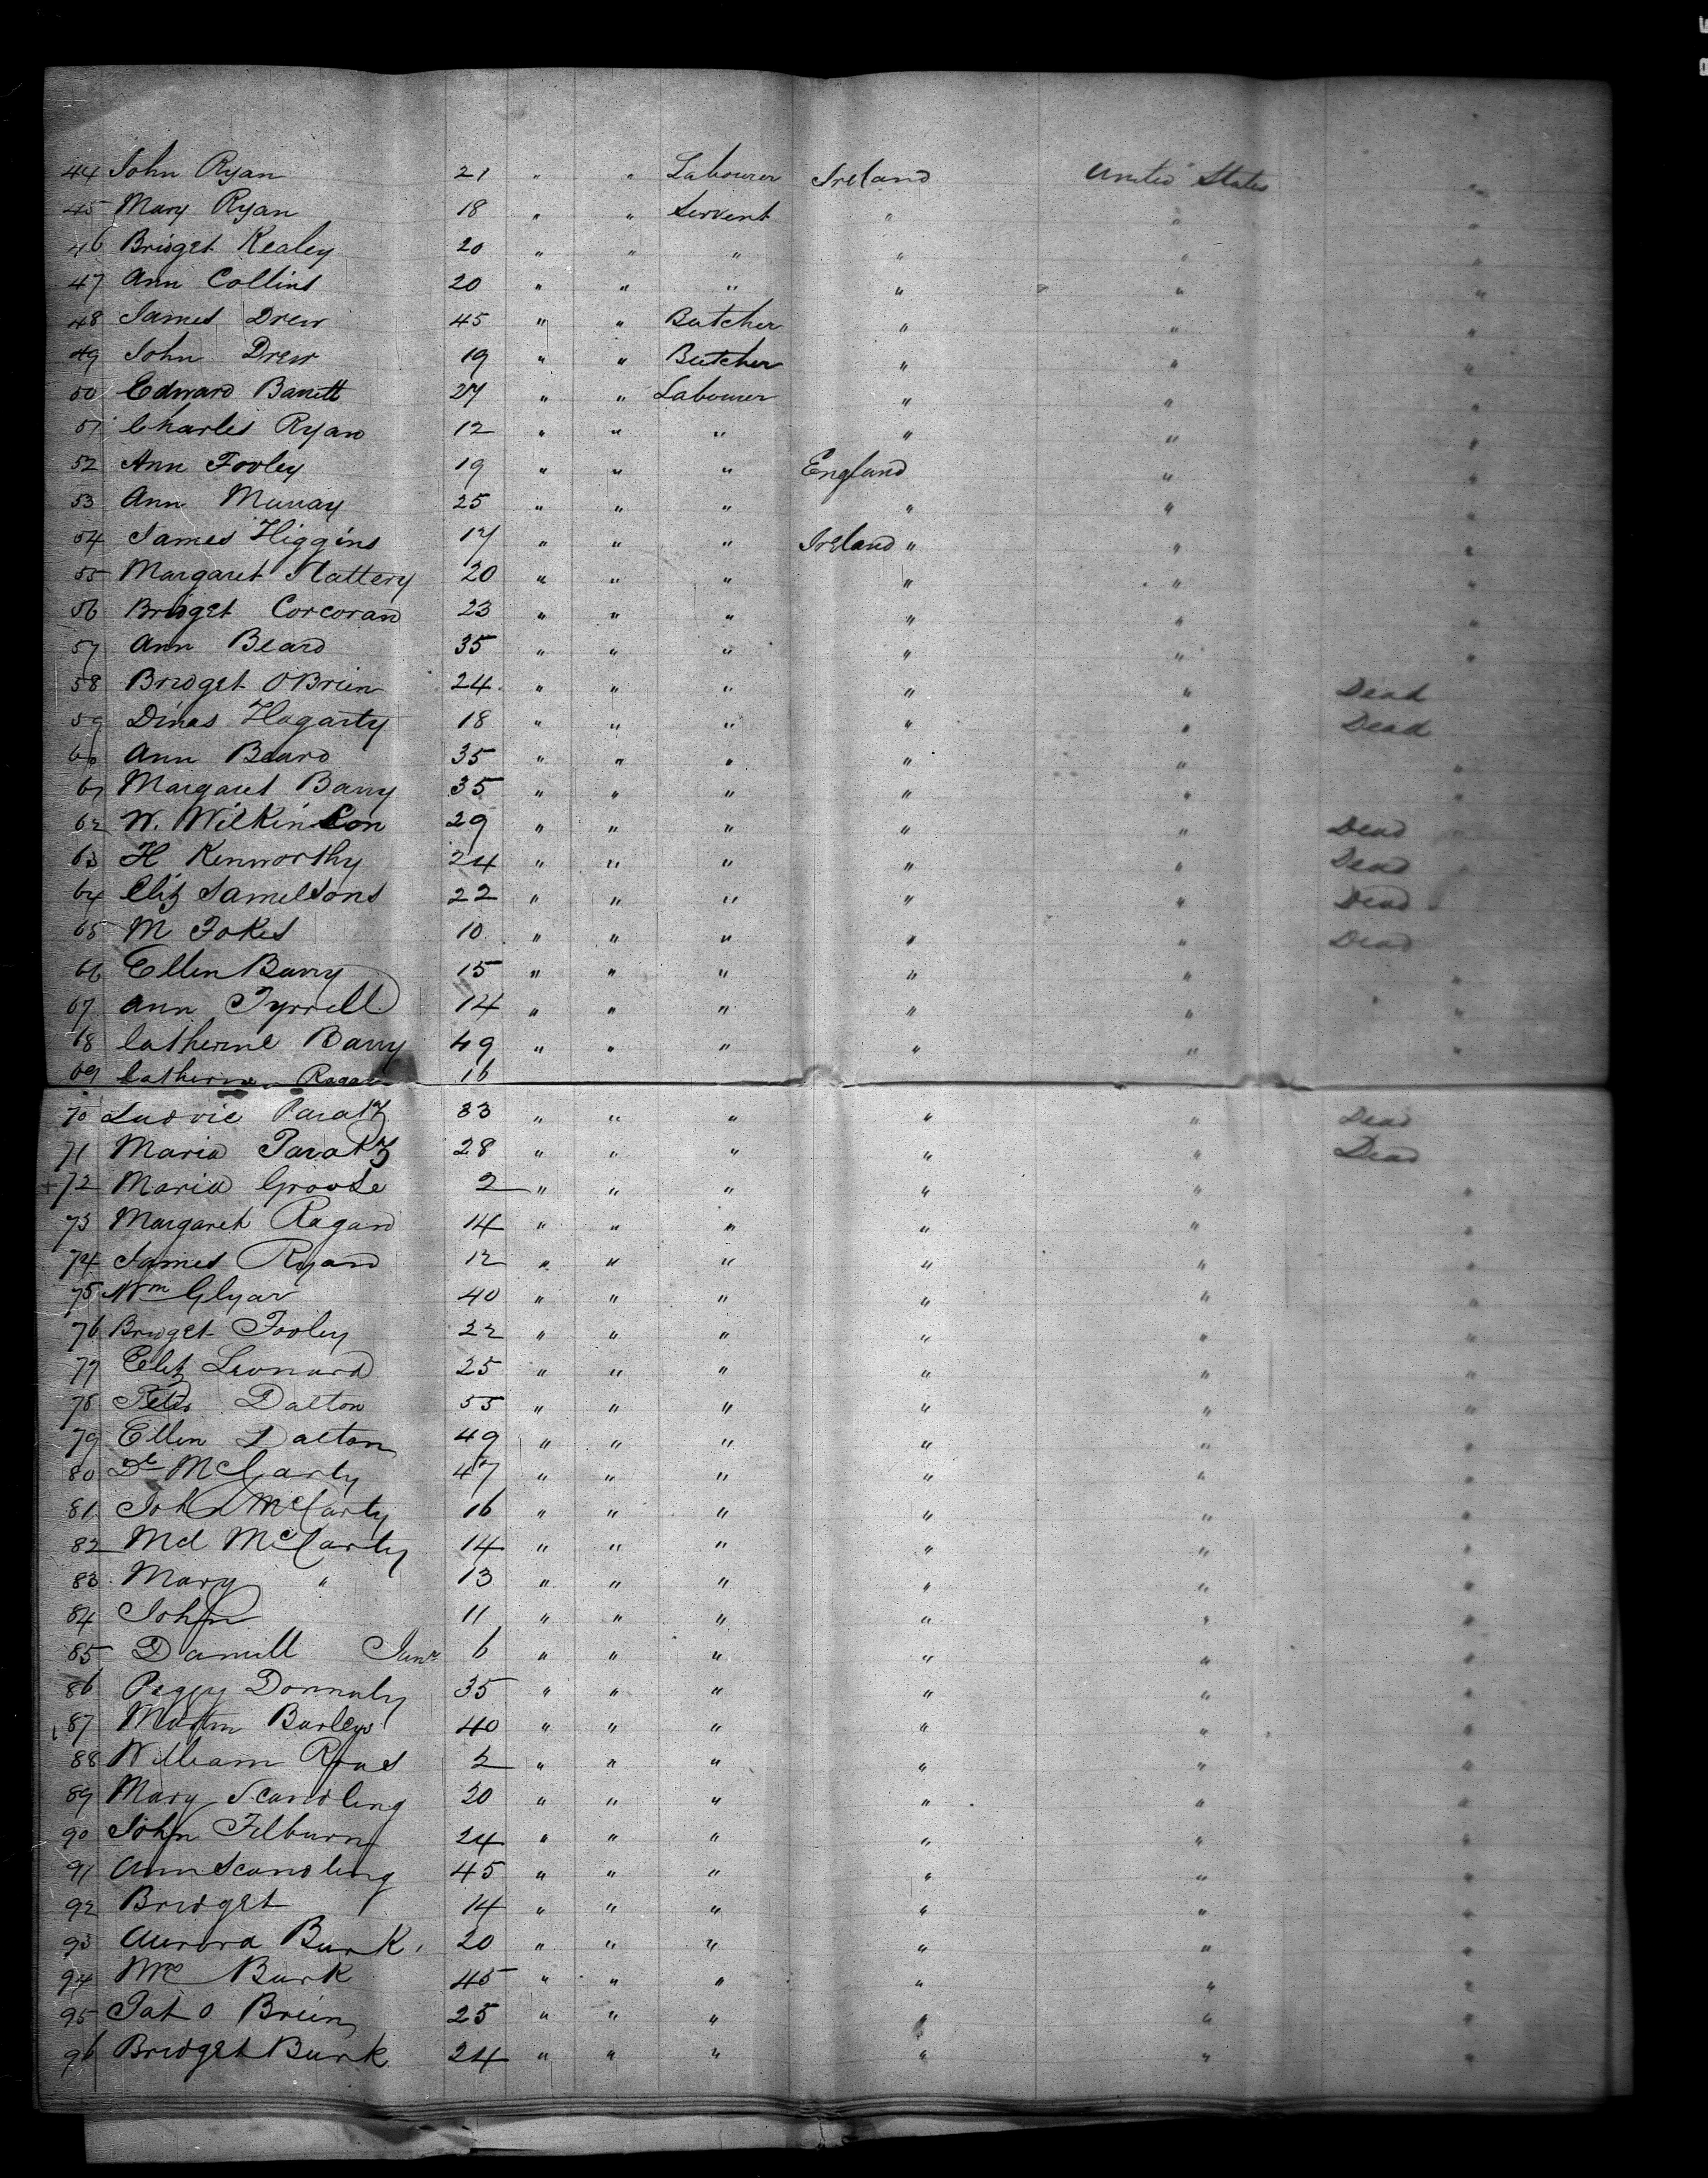 44 John Ryan 21 " " Labourer Ireland United States "
45 Mary Ryan 18 " " Servent " " "
46 Bridget Kealey 20 " " " " " "
47 Ann Collins 20 " " " " " "
48 James Drew 45 " " Butcher " " "
49 John Drew 19 " " Butcher " " "
50 Edward Barrett 27 " " Labourer " " "
51 Charles Ryan 12 " " " " " "
52 Ann Fooley 19 " " " England " "
53 Ann Murray 25 " " " " " "
54 James Higgins 17 " " " Ireland " " "
55 Margaret Slattery 20 " " " " " "
56 Bridget Corcoran 23 " " " " " "
57 Ann Beard 35 " " " " " "
58 Bridget O Brien 24 " " " " " Dead
59 Dinas Hagarty 18 " " " " " Dead
60 Ann Beard 35 " " " " " "
61 Margaret Barry 35 " " " " " "
62 W. Wilkinson 29 " " " " " Dead
63 H Kenworthy 24 " " " " " Dead
64 Eliz Samelsons 22 " " " " " Dead
65 M Fokes 10 " " " " " Dead
66 Ellen Barry 15 " " " " " "
67 Ann Tyrrell 14 " " " " " "
68 Catherine Barry 49 " " " " " "
69 Catherine Ragan 16
70 Ludvic Paratz 33 " " " " " Dead
71 Maria Paratz 28 " " " " " Dead
72 Maria Groose 2 " " " " " "
73 Margaret Ragan 14 " " " " " "
74 James Ryan 12 " " " " " "
75 Wm Glyar 40 " " " " " "
76 Bridget Fooley 22 " " " " " "
77 Eliz Leonard 25 " " " " " "
78 Peter Dalton 55 " " " " " "
79 Ellen Dalton 49 " " " " " "
80 Dl McCarty 47 " " " " " "
81 John McCarty 16 " " " " " "
82 Md McCarty 14 " " " " " "
83 Mary " 13 " " " " " "
84 John 11 " " " " " "
85 Daniell Junr 6 " " " " " "
86 Peggy Donnaly 35 " " " " " "
87 Martin Burleys 40 " " " " " "
88 William 2 " " " " " "
89 Mary Scandling 20 " " " " " "
90 John Filburn 24 " " " " " "
91 Ann Scandling 45 " " " " " "
92 Bridget 14 " " " " " "
93 Aurora Burk. 20 " " " " " "
94 Mrs Burk 45 " " " " " "
95 Pat O Brien 25 " " " " " "
96 Bridget Burk 24 " " " " " "